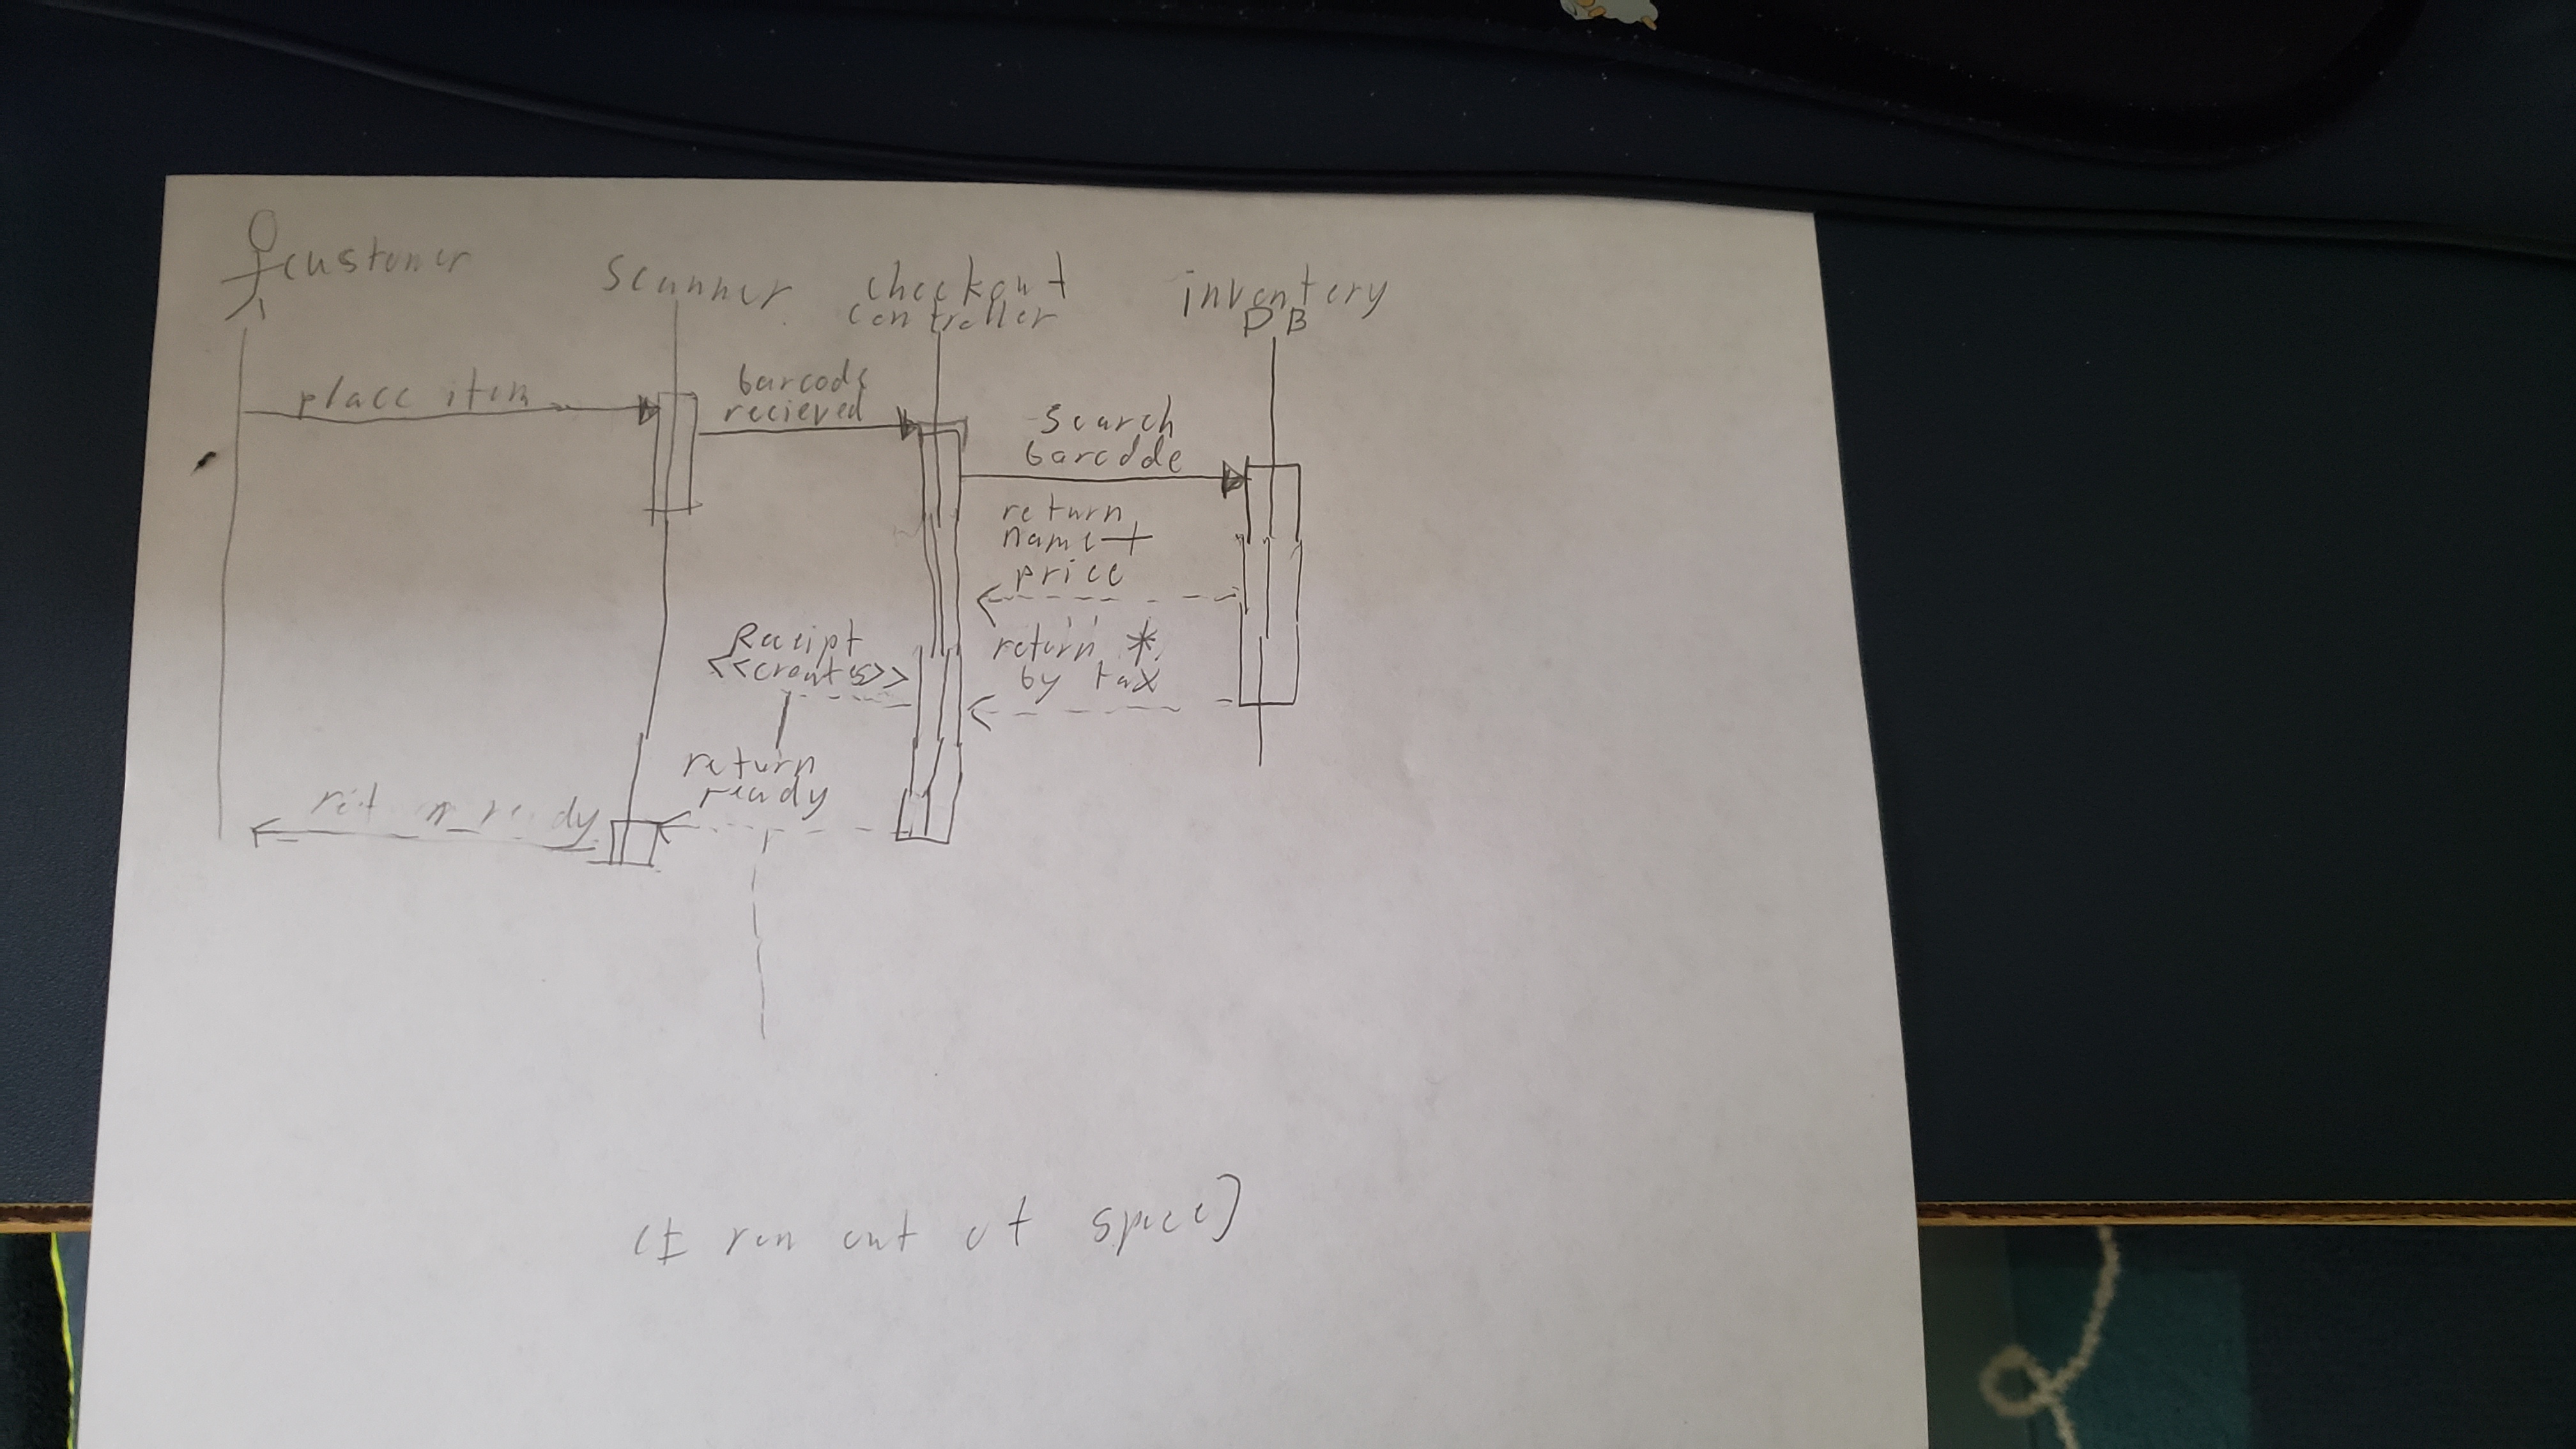 customer
scanner
checkout
controller
inventery
DB
place item
barcode
recieved
search
barcode
return
name +
price
Receipt
<<creates>>
return *
by tax
return
ready
return ready
(I ran out of space)